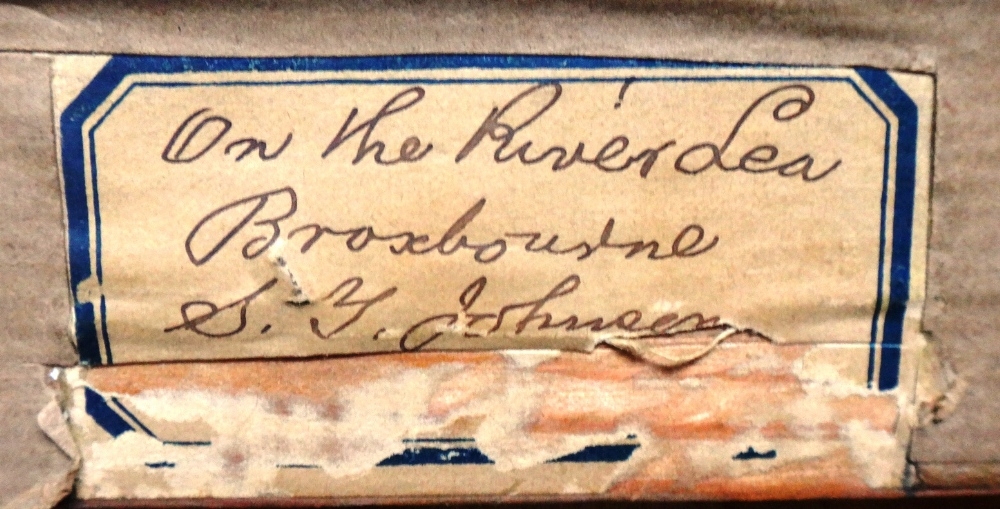 On the River Lea
Broxbourne
S. Y. Johnson